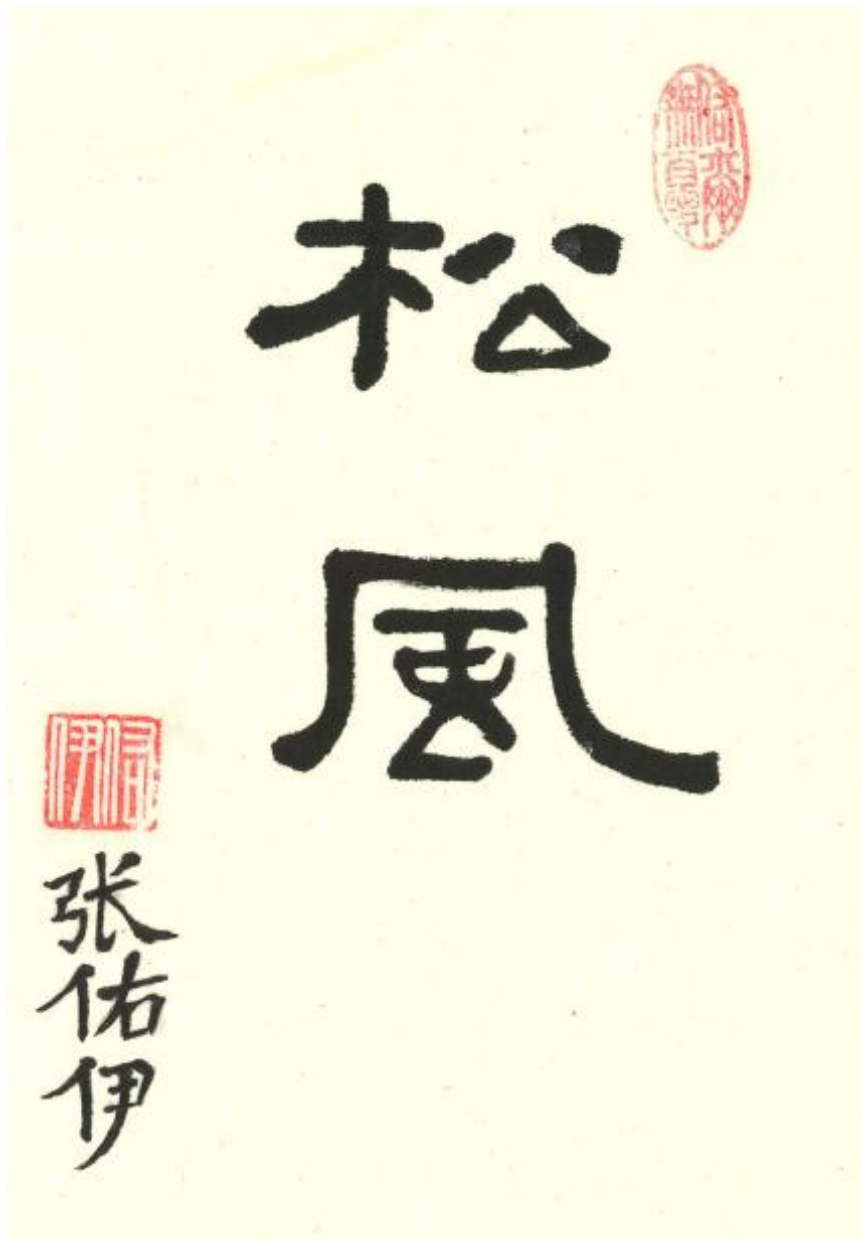 松
風
佑伊
张佑伊